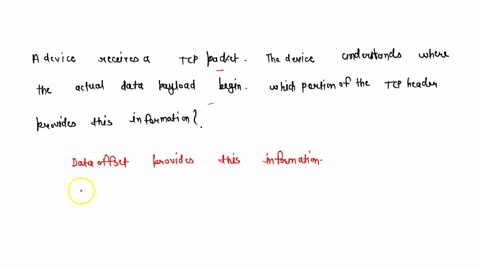 A device receives a TCP packet. The device understands where
the actual data payload begin. which portion of the TCP header
provides this information?
Data offset provides this information.